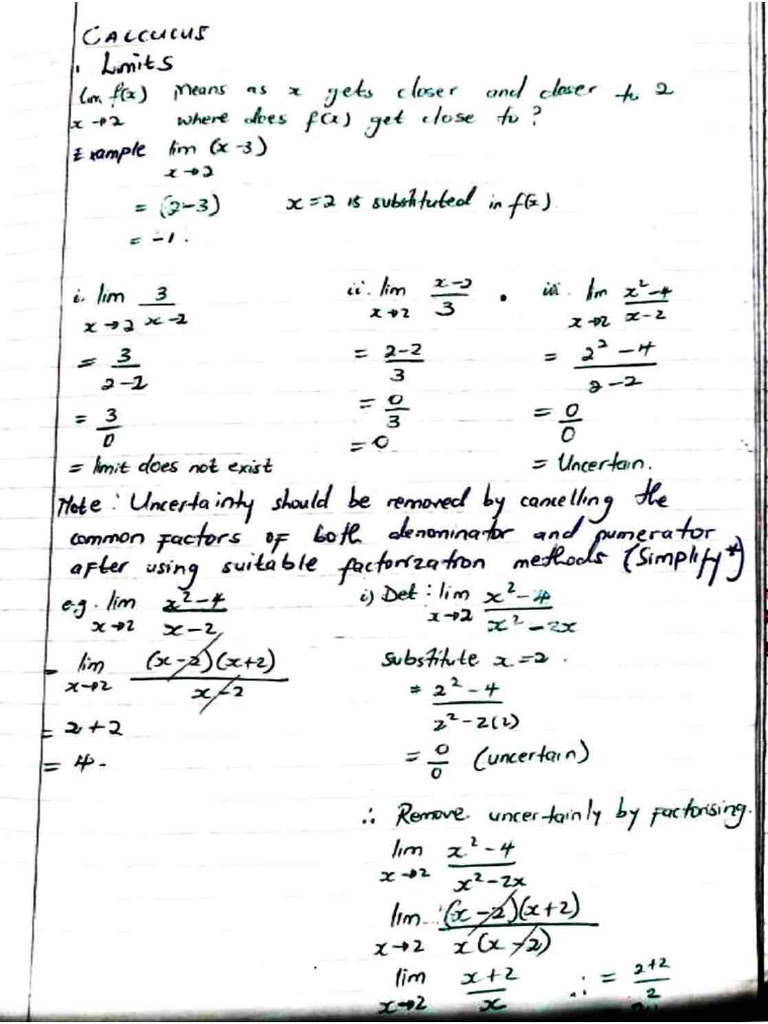 CALCULUS
. Limits
lim f(x) means as x gets closer and closer to 2
x→2 where does f(x) get close to?
Example lim (x-3)
x→2
= (2-3) x=2 is substituted in f(x).
= -1.
i. lim 3/(x-2) ii. lim (x-2)/3 . iii. lim (x²-4)/(x-2)
x→2 x→2 x→2
= 3/(2-2) = (2-2)/3 = (2²-4)/(2-2)
= 3/0 = 0/3 = 0/0
= limit does not exist = 0 = Uncertain.
Note: Uncertainty should be removed by cancelling the
common factors of both denominator and numerator
after using suitable factorization methods (Simplify*)
e.g. lim (x²-4)/(x-2) i) Det: lim (x²-4)/(x²-2x)
x→2 x→2
= lim (x-2)(x+2)/(x-2) substitute x=2.
x→2
= 2+2 = (2²-4)/(2²-2(2))
= 4. = 0/0 (uncertain)
∴ Remove uncertainly by factorising.
lim (x²-4)/(x²-2x)
x→2
lim (x-2)(x+2)/x(x-2)
x→2
lim (x+2)/x ∴ = (2+2)/2
x→2